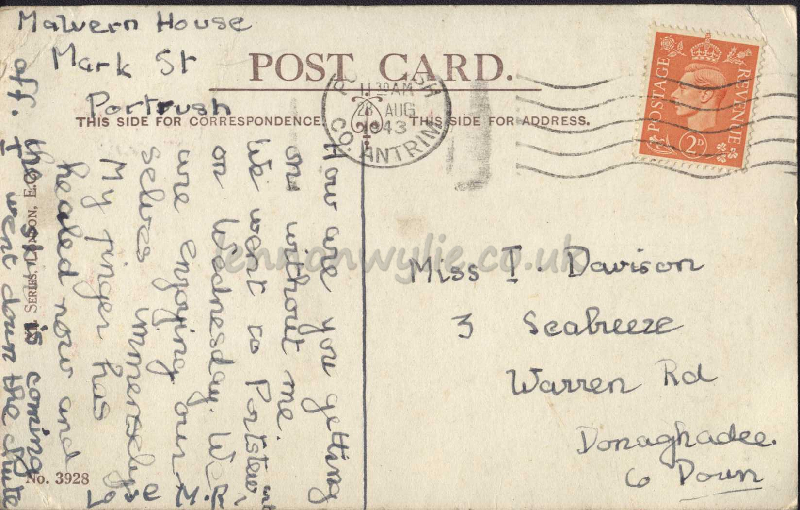 Malvern House
Mark St
Portrush
POST CARD.
THIS SIDE FOR CORRESPONDENCE.
THIS SIDE FOR ADDRESS.
11 30 AM
AUG
1943
CO. ANTRIM
POSTAGE
REVENUE
2D
How are you getting
on without me.
We went to Portstewart
on Wednesday. We
are enjoying our
selves immensely.
My finger has
healed now and
the skin is coming
off. I went down the chute
Love M.R.
Miss I. Davison
3 Seabreeze
Warren Rd
Donaghadee.
Co Down
SERIES, LONDON, E.
No. 3928
lennonwylie.co.uk